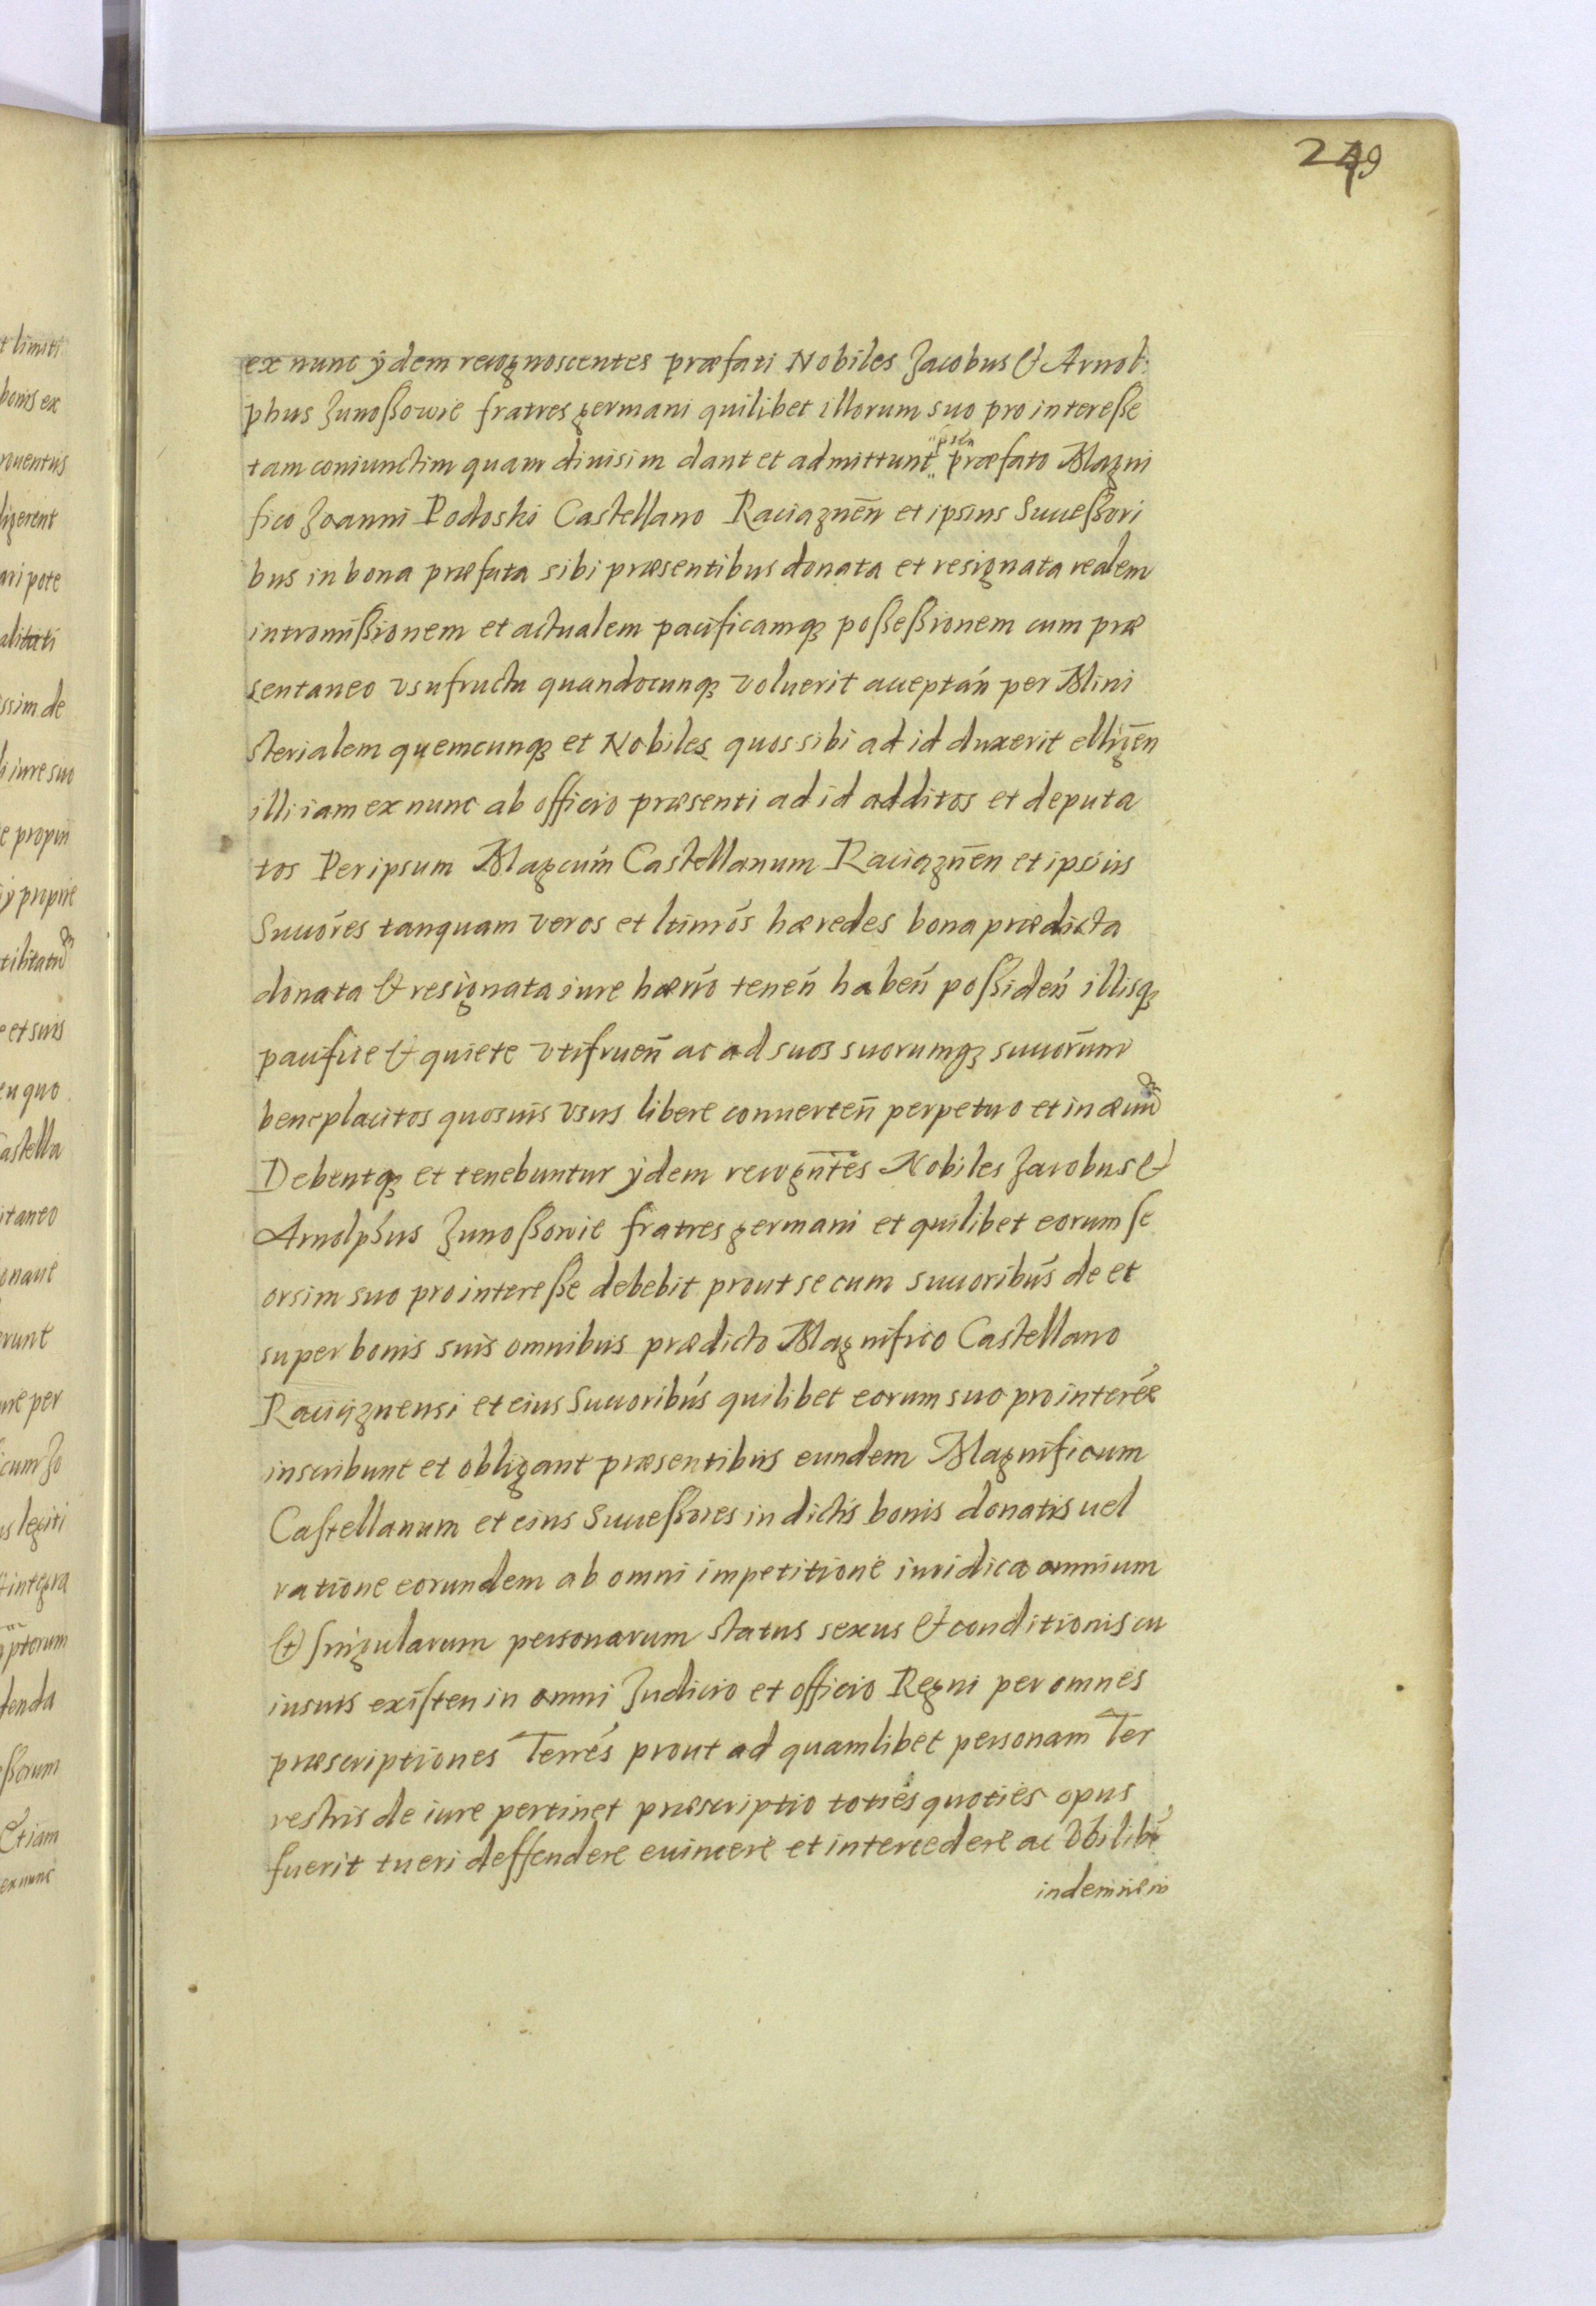 249
ex nunc ydem recognoscentes præfati Nobiles Jacobus & Arnol:
phus Junoßowie fratres germani quilibet illorum suo pro intereße
tam coniunctim quam diuisim dant et admittunt præfato Magni
fico Joanni Podoski Castellano Raciąznen̄ et ipsius Succeßori
bus in bona præfata sibi præsentibus donata et resignata realem
intromißionem et actualem pacificamq; poßeßionem cum præ
sentaneo vsufructu quandocunq; voluerit acceptań per Mini
sterialem quemcunq; et Nobiles quos sibi ad id duxerit elligēn
illi iam ex nunc ab officio præsenti ad id additos et deputa
tos Per ipsum Magcum Castellanum Raciąznēn et ipsius
Succōres tanquam veros et ltimōs hæredes bona prædicta
donata & resignata iure hærrio tenen̄ haben̄ poßiden̄ illisq;
pacifice & quiete vtifruen̄ ac ad suos suorumq; succorūm
beneplacitos quosuis vsus libere conuerten̄ perpetuo et in æuū
Debentq; et tenebuntur ydem recogn̄tes Nobiles Jacobus &
Arnolphus Junoßowie fratres germani et quilibet eorum se
orsim suo pro intereße debebit prout se cum succoribús de et
super bonis suis omnibus prædicto Magnifico Castellano
Raciąznensi et eius Succoribús quilibet eorum suo pro interée
inscribunt et obligant præsentibus eundem Magnificum
Castellanum et eius Succeßores in dictis bonis donatis uel
ratione eorundem ab omni impetitione iuridica omnium
& singularum personarum status sexus & conditionis cu
iusuis existen in omni Judicio et officio Regni per omnes
præscriptiones Terrés prout ad quamlibet personam Ter
restris de iure pertinet præscriptio toties quoties opus
fuerit tueri deffendere euincere et intercedere ac Vbilibé
indemnem